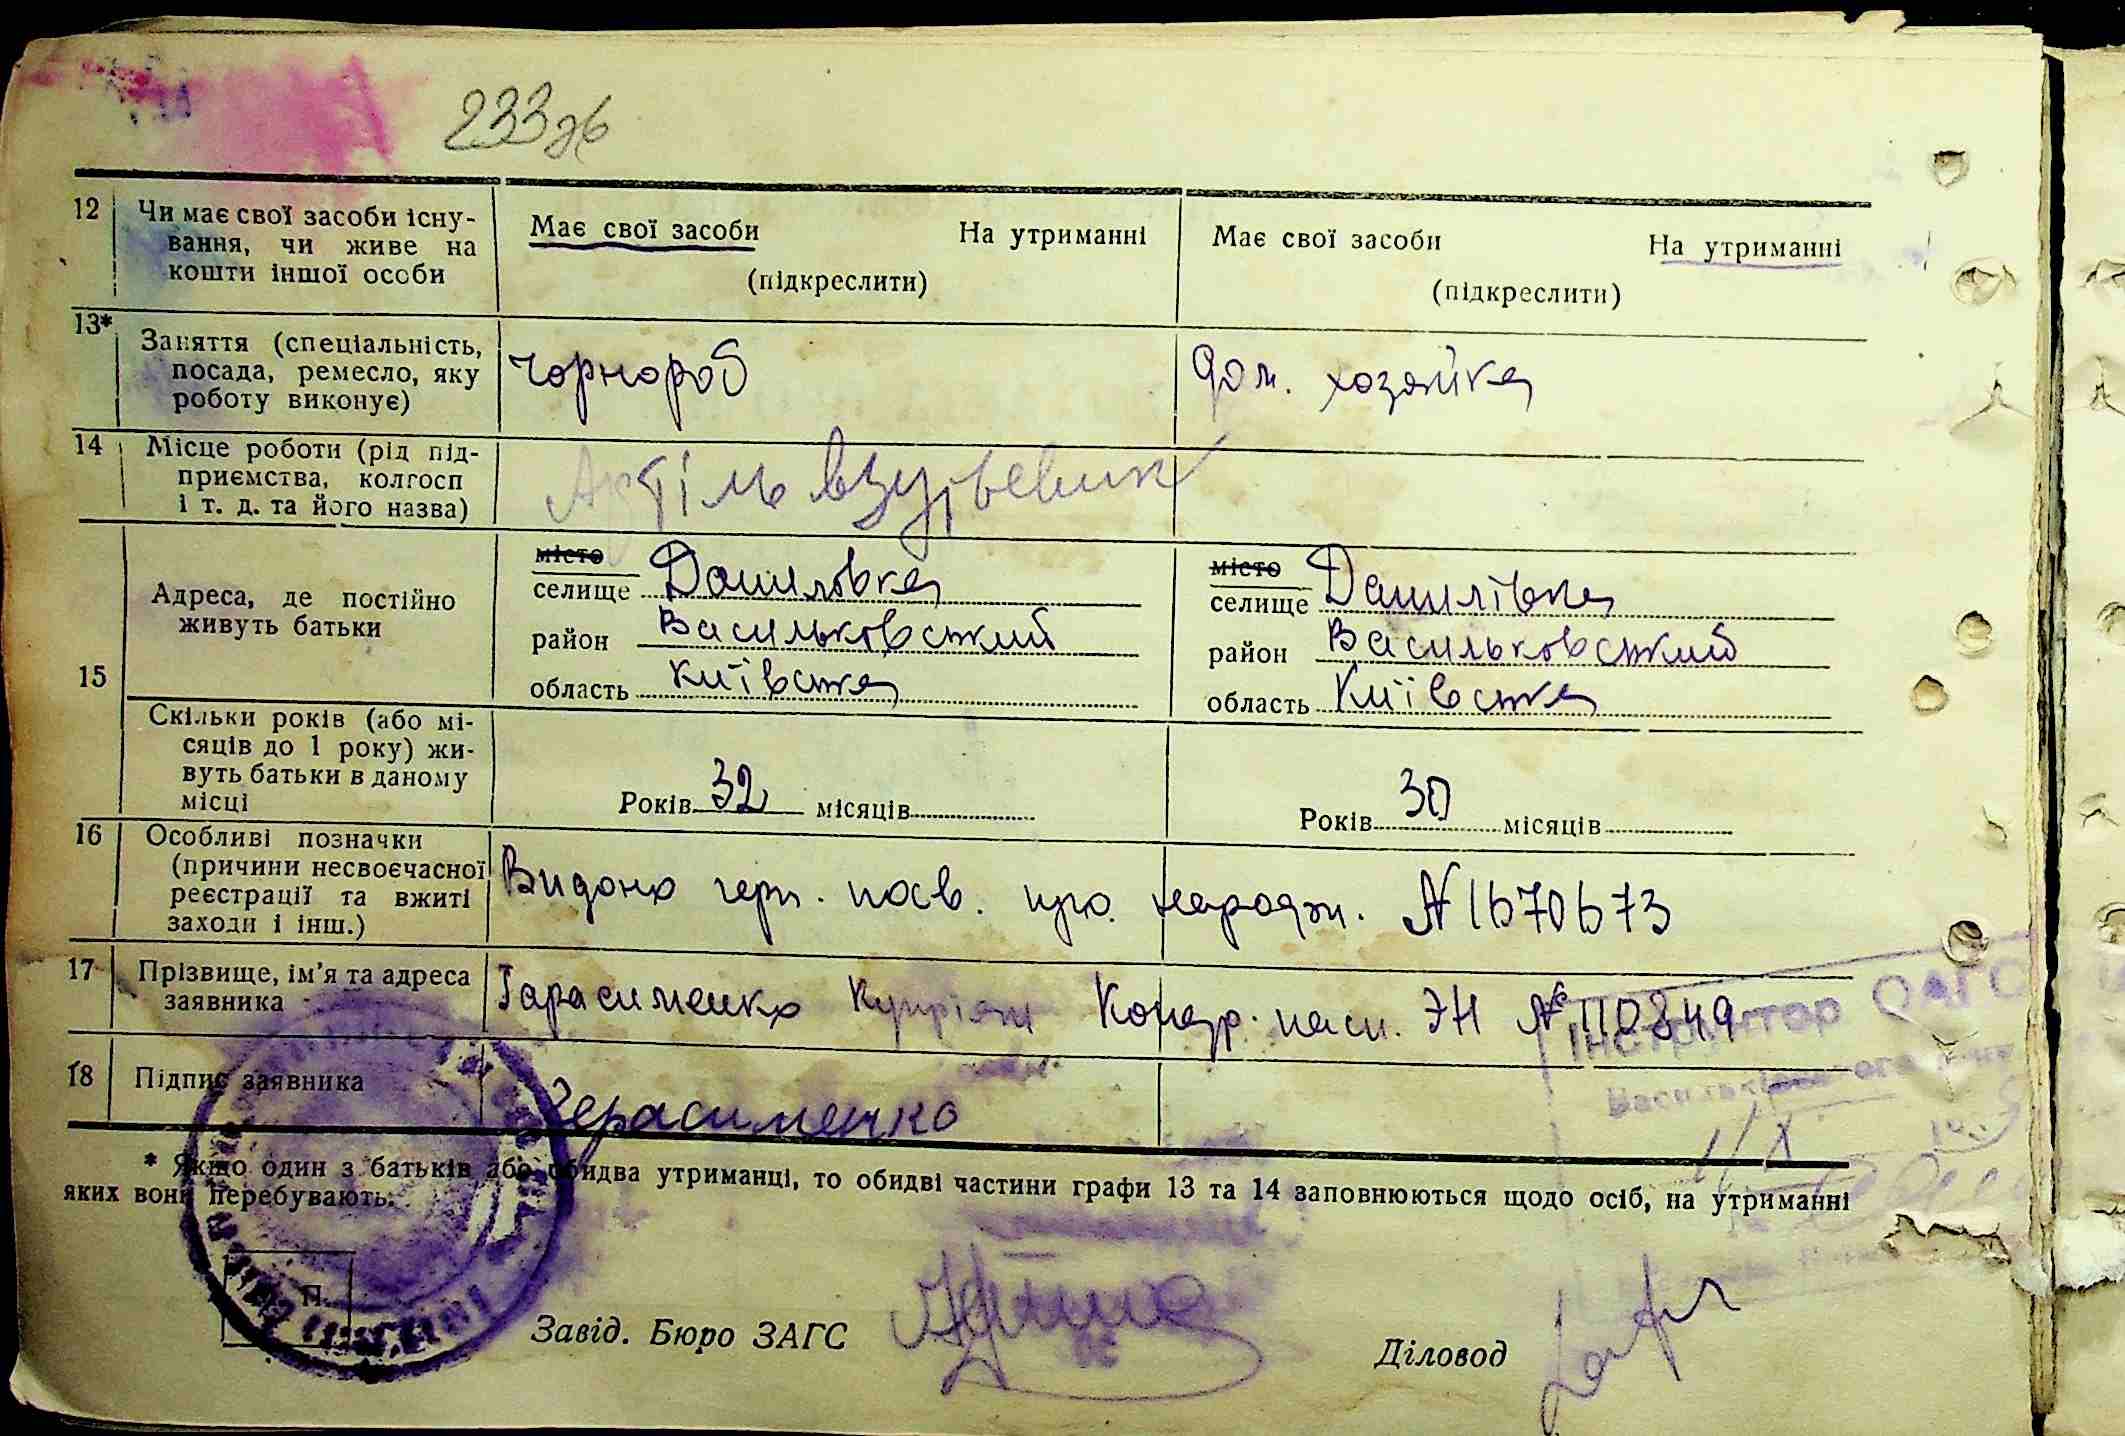 233зв
12 Чи має свої засоби існу-
вання, чи живе на
кошти іншої особи
Має свої засоби На утриманні
(підкреслити)
Має свої засоби На утриманні
(підкреслити)
13* Заняття (спеціальність,
посада, ремесло, яку
роботу виконує)
чорнороб
Дом. хозяйка
14 Місце роботи (рід під-
приємства, колгосп
і т. д. та його назва)
Артіль взутьевик
15 Адреса, де постійно
живуть батьки
місто
селище Даниловка
район Васильковський
область Київська
місто
селище Данилівка
район Васильковський
область Київська
Скільки років (або мі-
сяців до 1 року) жи-
вуть батьки в даному
місці
Років 32 місяців
Років 30 місяців
16 Особливі позначки
(причини несвоєчасної
реєстрації та вжиті
заходи і інш.)
Видано герб. посв. про. народж. № 1670673
17 Прізвище, ім'я та адреса
заявника
Гарасименко Купріян Кондр. пасп. ЭН № 110849
18 Підпис заявника
Герасименко
* Якщо один з батьків або обидва утриманці, то обидві частини графи 13 та 14 заповнюються щодо осіб, на утриманні
яких вони перебувають.
Інструктор ОАГС
1/X
П.
Завід. Бюро ЗАГС
Діловод